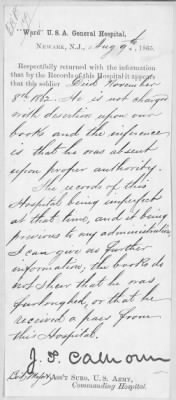 "Ward" U. S. A. General Hospital,
Newark, N.J., Aug 9th 1865.
Respectfully returned with the information
that by the Records of this Hospital it appears
that this soldier Died November
8th 1862. He is not charged
with desertion upon our
books and the inference
is that he was absent
upon proper authority.
The records of this
Hospital being imperfect
at that time, and it being
previous to my administration
I can give no further
information, the books do
not shew that he was
furloughed, or that he
received a pass from
this Hospital.
J. T. Calhoun
Ass't Surg. U. S. Army,
Commanding Hospital.